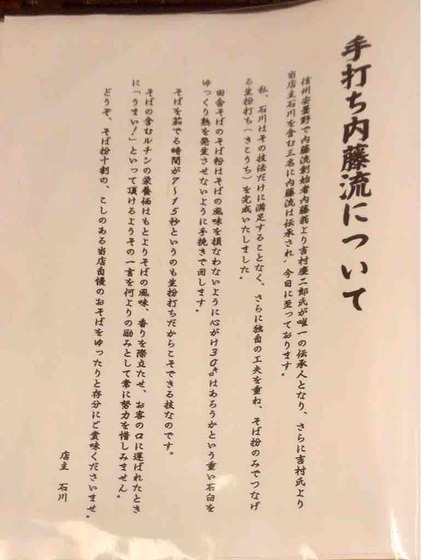 手打ち内藤流について
信州安曇野で内藤流創始者内藤翁より吉村慶二郎氏が唯一の伝承人となり、さらに吉村氏より
当店主石川を含む三名に内藤流は伝承され、今日に至っております。
私、石川はその技法だけに満足することなく、さらに独自の工夫を重ね、そば粉のみでつなげ
る生粉打ち(きこうち)を完成いたしました。
田舎そばのそば粉はそばの風味を損なわないように心がけ30㎏はあろうかという重い石臼を
ゆっくり熱を発生させないように手挽きで回します。
そばを茹でる時間が7〜15秒というのも生粉打ちだからこそできる技なのです。
そばの含むルチンの栄養価はもとよりそばの風味、香りを際立たせ、お客の口に運ばれたとき
に「うまい!」といって頂けるようその一言を何よりの励みとして常に努力を惜しみません。
どうぞ、そば粉十割の、こしのある当店自慢のおそばをゆったりと存分にご賞味くださいませ。
店主 石川